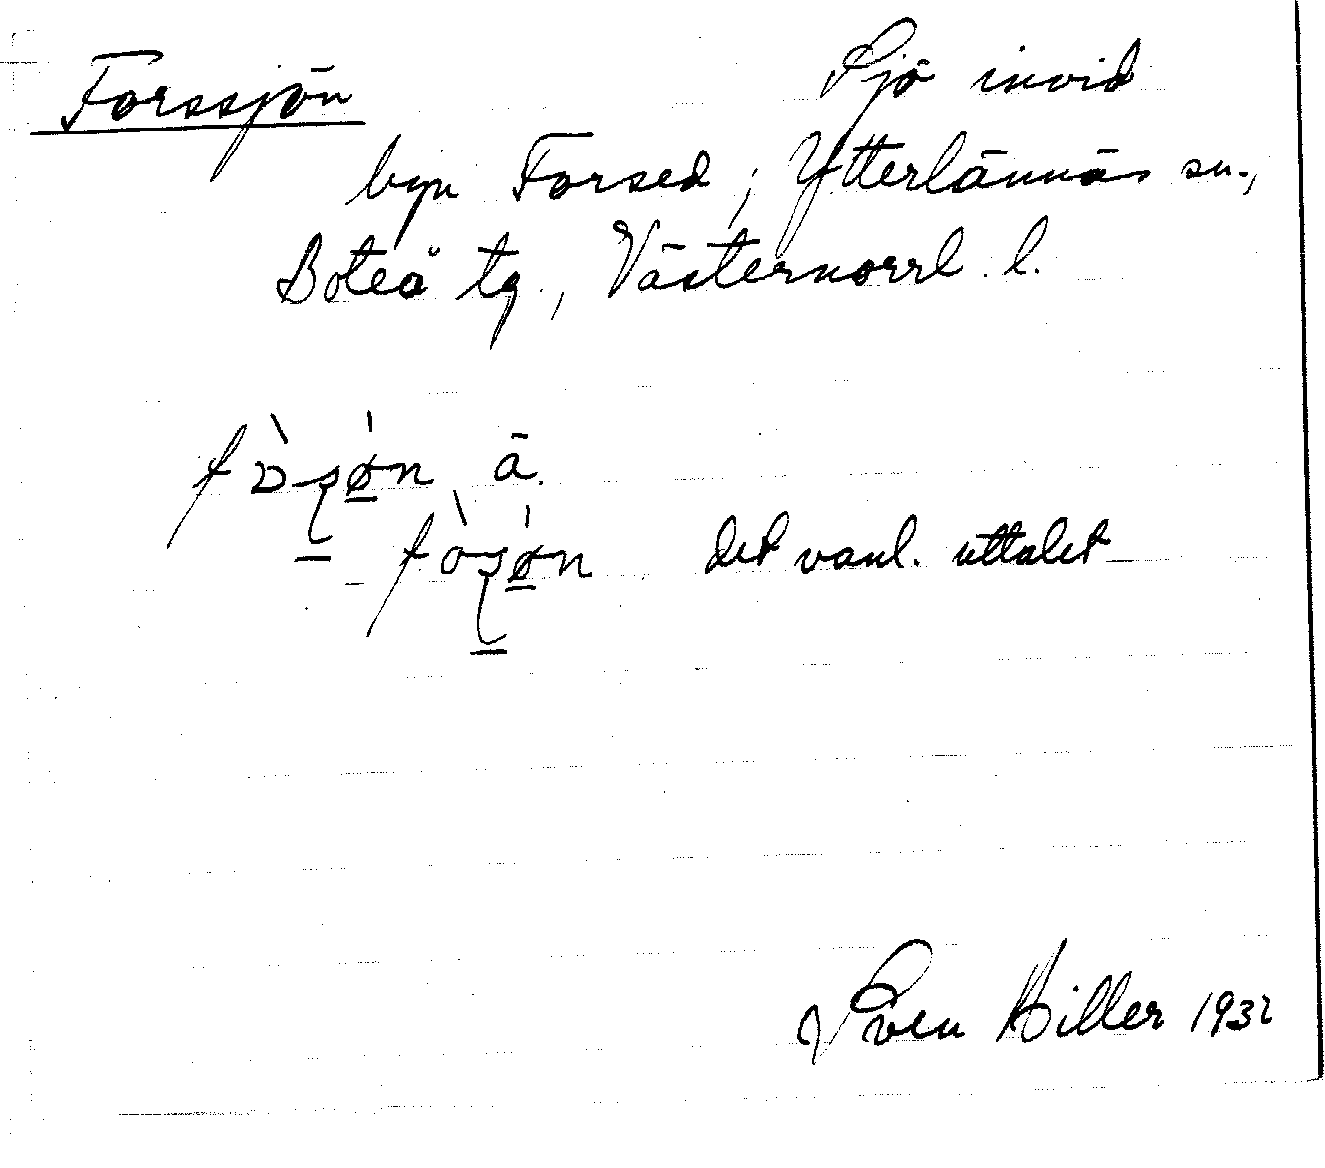 Forssjön Sjö invid
byn Forsed, Ytterlännäs sn.,
Boteå tg., Västernorrl. l.
fòʂø̀n ā.
fòʂø̀n det vanl. uttalet
Sven Hiller 1932